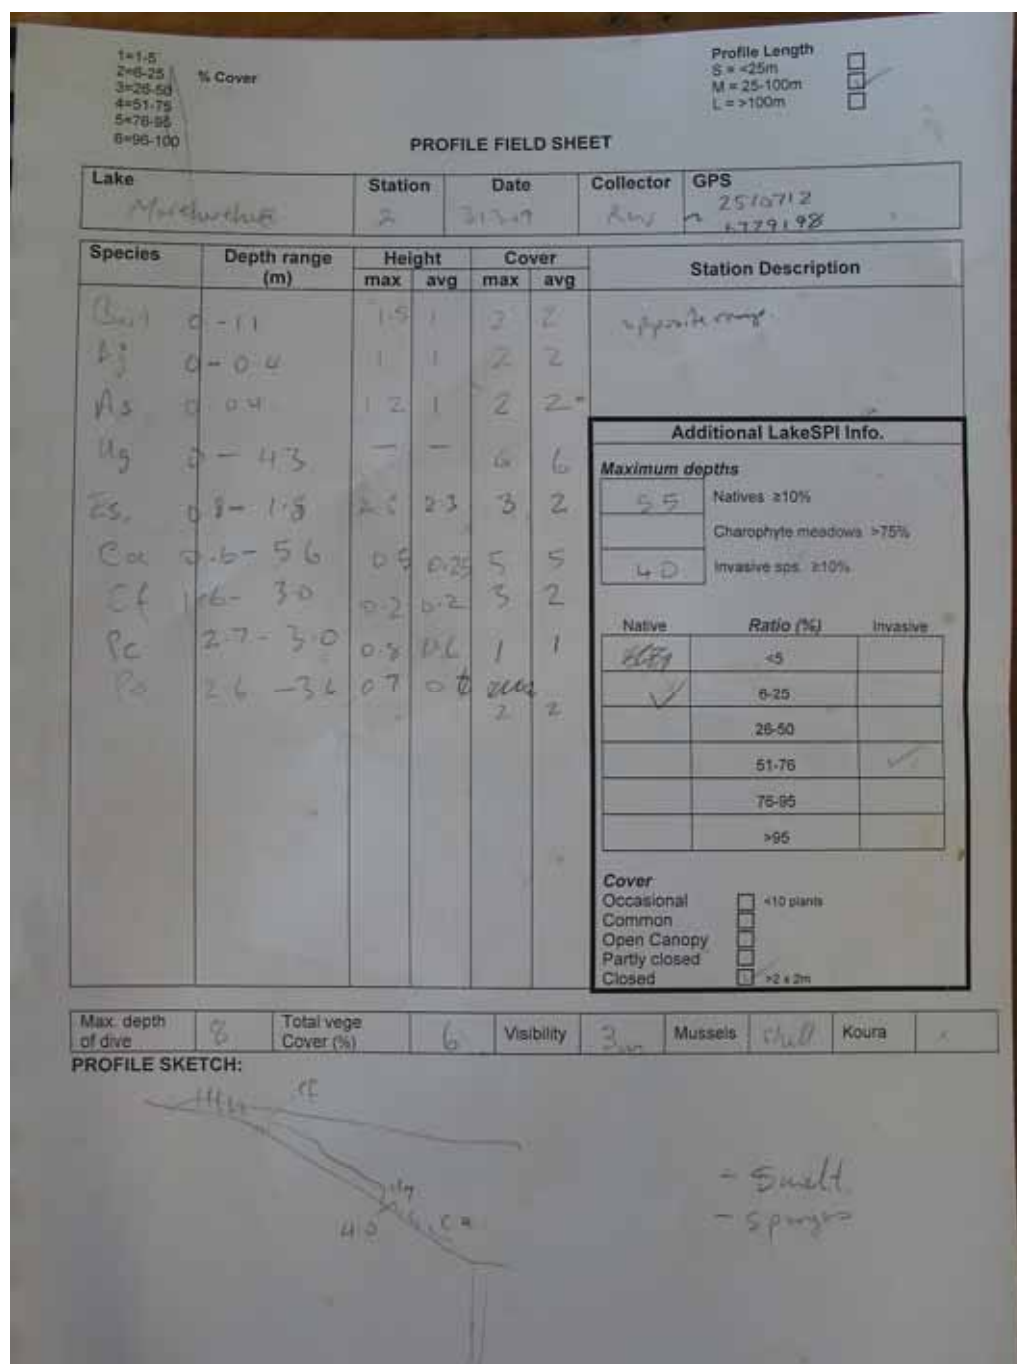 1=1-5
2=6-25
3=26-50
4=51-75
5=76-95
6=96-100
% Cover
Profile Length
S = <25m
M = 25-100m
L = >100m
PROFILE FIELD SHEET
Lake Station Date Collector GPS
2 2510712
6779198
Species Depth range (m) Height max avg Cover max avg Station Description
0-11 1.5 1 2 2 opposite range
0-0.4 1 1 2 2
As 0 04 1 2 1 2 2
Ug 0 - 4.3 - - 6 6
Es. 0 8 - 1.8 2.3 3 2
Ca 0.6 - 5 6 0.5 0.25 5 5
Cf 1.6 - 3.0 0.2 0.2 3 2
Pc 2.7 - 3.0 0.8 0.6 1 1
Po 2 6 - 3 6 0 7 2 2
Additional LakeSPI Info.
Maximum depths
5 5 Natives ≥10%
Charophyte meadows >75%
4 0 Invasive sps. ≥10%
Native Ratio (%) Invasive
<5
6-25
26-50
51-76
76-95
>95
Cover
Occasional <10 plants
Common
Open Canopy
Partly closed
Closed >2 x 2m
Max. depth of dive 8 Total vege Cover (%) 6 Visibility 3m Mussels shell Koura x
PROFILE SKETCH:
cf
ug
4.0 Ca
- Smelt
- Sponges